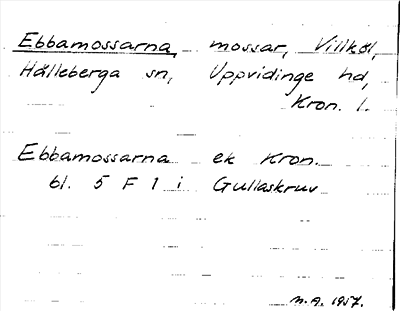 Ebbamossarna, mossar, Villköl,
Hälleberga sn, Uppvidinge hd,
Kron. l.
Ebbamossarna ek Kron.
bl. 5 F 1 i Gullaskruv
M.A. 1957.